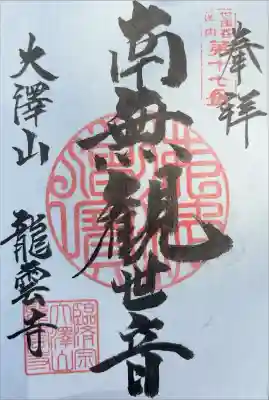 奉拝
第十七番
南無観世音
大澤山
龍雲寺
臨済宗
大澤山
龍雲寺